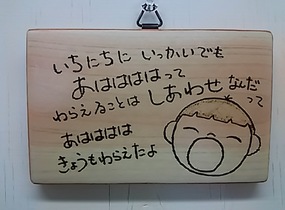 いちにちに いっかいでも
あははははって
わらえることは しあわせ なんだ って
あはははは
きょうもわらえたよ